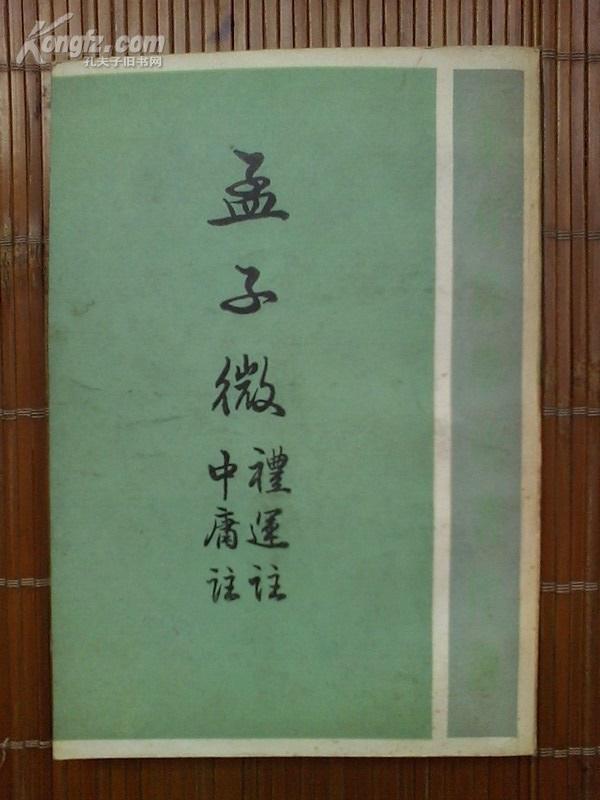 Kongfz.com
孔夫子旧书网
孟子微
禮運註
中庸註